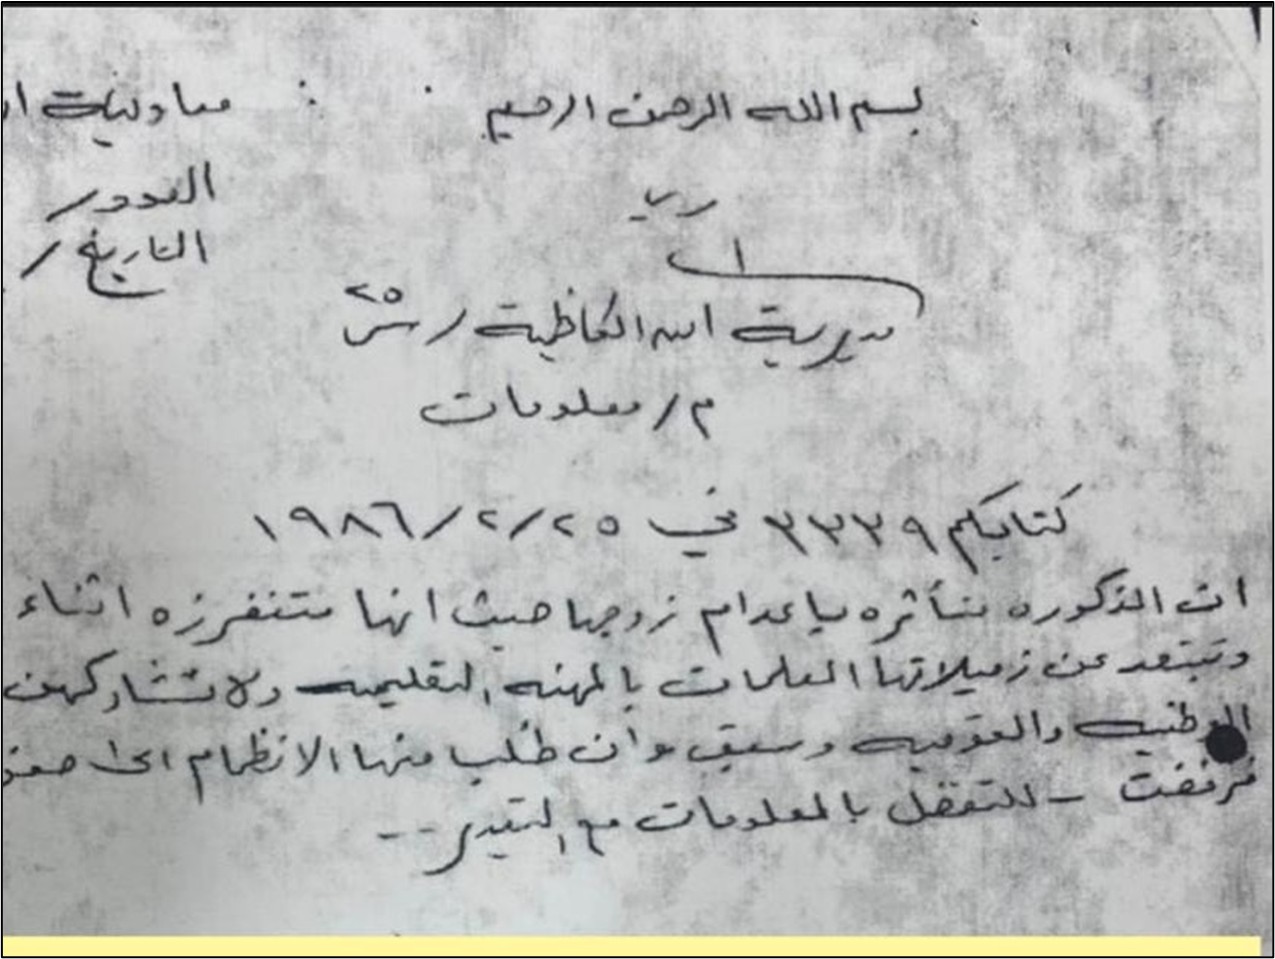 بسم الله الرحمن الرحيم
معاونية
العدد /
التاريخ /
الى /
مديرية امن الكاظمية / ش٢٥
م / معلومات
كتابكم ٣٣٣٩ في ٢٥ / ٢ / ١٩٨٦
ان المذكوره متأثره باعدام زوجها حيث انها متنفرزه اثناء
وتبتعد عن زميلاتها المعلمات بالمهنه التعليميه ولا تشاركهن
الوطنيه والقوميه وسبق وان طلب منها الانظمام الى
فرفضت - للتفضل بالمعلومات مع التقدير --